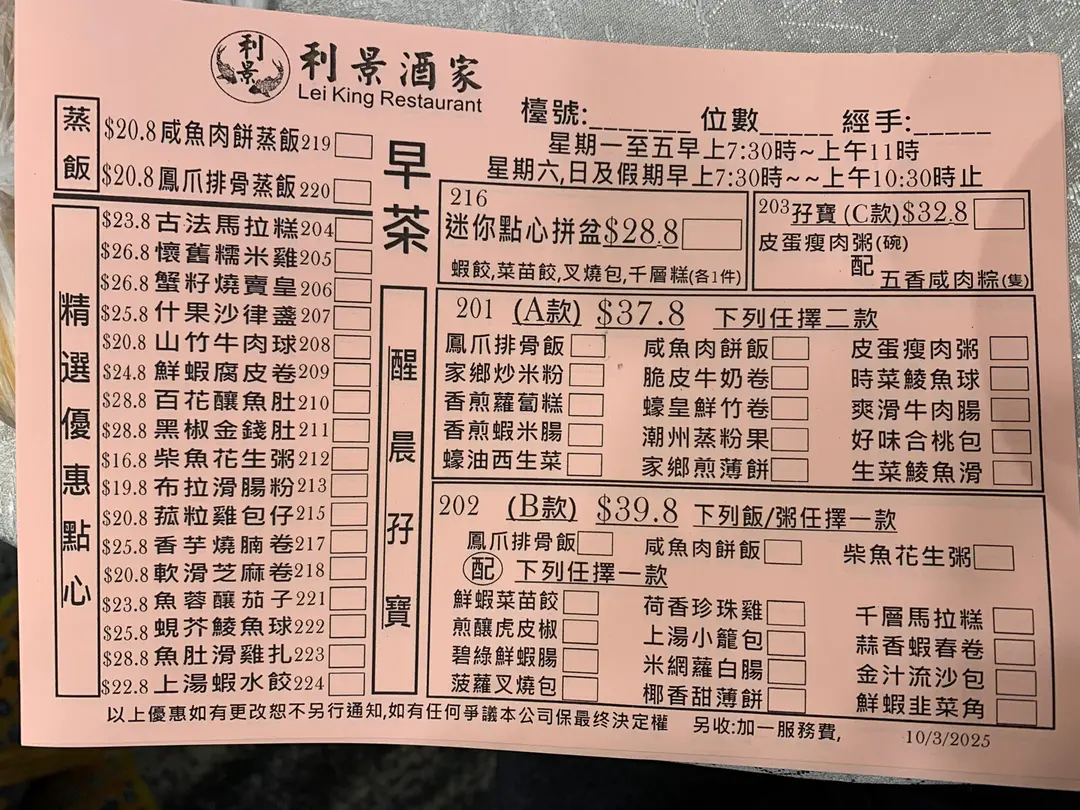 利景
利景酒家
Lei King Restaurant
檯號:_______ 位數_____ 經手:_____
星期一至五早上7:30時~上午11時
星期六,日及假期早上7:30時~~上午10:30時止
早茶
蒸飯
$20.8 咸魚肉餅蒸飯 219
$20.8 鳳爪排骨蒸飯 220
精選優惠點心
$23.8 古法馬拉糕 204
$26.8 懷舊糯米雞 205
$26.8 蟹籽燒賣皇 206
$25.8 什果沙律盞 207
$20.8 山竹牛肉球 208
$24.8 鮮蝦腐皮卷 209
$28.8 百花釀魚肚 210
$28.8 黑椒金錢肚 211
$16.8 柴魚花生粥 212
$19.8 布拉滑腸粉 213
$20.8 菰粒雞包仔 215
$25.8 香芋燒腩卷 217
$20.8 軟滑芝麻卷 218
$23.8 魚蓉釀茄子 221
$25.8 蜆芥鯪魚球 222
$28.8 魚肚滑雞扎 223
$22.8 上湯蝦水餃 224
醒晨孖寶
216
迷你點心拼盆 $28.8
蝦餃,菜苗餃,叉燒包,千層糕(各1件)
203 孖寶 (C款) $32.8
皮蛋瘦肉粥(碗)
配
五香咸肉粽(隻)
201 (A款) $37.8 下列任擇二款
鳳爪排骨飯 咸魚肉餅飯 皮蛋瘦肉粥
家鄉炒米粉 脆皮牛奶卷 時菜鯪魚球
香煎蘿蔔糕 蠔皇鮮竹卷 爽滑牛肉腸
香煎蝦米腸 潮州蒸粉果 好味合桃包
蠔油西生菜 家鄉煎薄餅 生菜鯪魚滑
202 (B款) $39.8 下列飯/粥任擇一款
鳳爪排骨飯 咸魚肉餅飯 柴魚花生粥
配 下列任擇一款
鮮蝦菜苗餃 荷香珍珠雞 千層馬拉糕
煎釀虎皮椒 上湯小籠包 蒜香蝦春卷
碧綠鮮蝦腸 米網蘿白腸 金汁流沙包
菠蘿叉燒包 椰香甜薄餅 鮮蝦韭菜角
以上優惠如有更改恕不另行通知,如有任何爭議本公司保最终決定權 另收:加一服務費,
10/3/2025